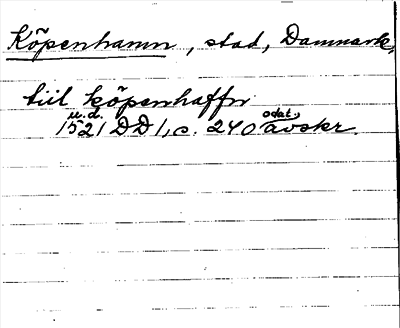 Köpenhamn, stad, Danmark,
tiil köpenhaffn
u.d. odat.,
1521 DD 1, c. 240 avskr.